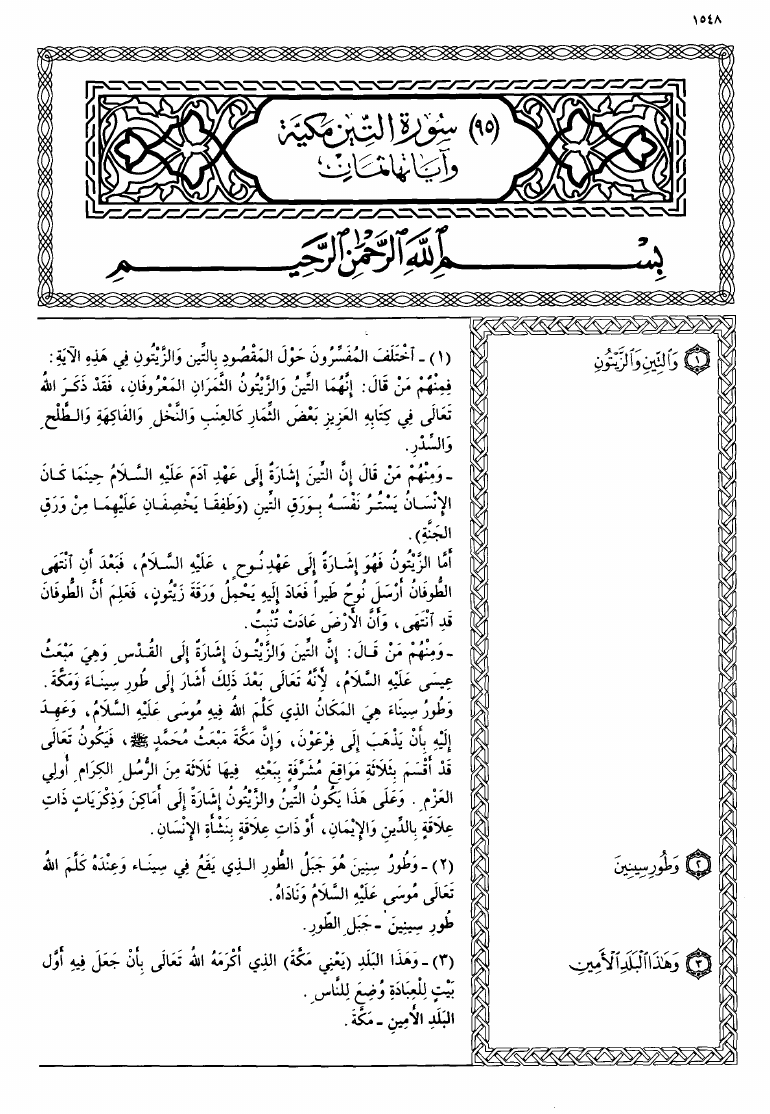 ١٥٤٨
(٩٥) سُورَة التِّين مَكيَّة
وآيَاتهَا ثَمَانٍ
بِسْمِ ٱللَّهِ ٱلرَّحْمَٰنِ ٱلرَّحِيمِ
١ وَٱلتِّينِ وَٱلزَّيْتُونِ
(١) - ٱخْتَلَفَ المُفَسِّرُونَ حَوْلَ المَقْصُودِ بِالتِّينِ وَالزَّيْتُونِ فِي هَذِهِ الآيَةِ:
فَمِنْهُمْ مَنْ قَالَ: إِنَّهُمَا التِّينُ وَالزَّيْتُونُ الثَّمَرَانِ المَعْرُوفَانِ، فَقَدْ ذَكَرَ اللهُ
تَعَالَى فِي كِتَابِهِ العَزِيزِ بَعْضَ الثِّمَارِ كَالعِنَبِ وَالنَّخْلِ وَالفَاكِهَةِ وَالطَّلْحِ
وَالسِّدْرِ.
- وَمِنْهُمْ مَنْ قَالَ إِنَّ التِّينَ إِشَارَةٌ إِلَى عَهْدِ آدَمَ عَلَيْهِ السَّلَامُ حِينَمَا كَانَ
الإِنْسَانُ يَسْتُرُ نَفْسَهُ بِوَرَقِ التِّينِ (وَطَفِقَا يَخْصِفَانِ عَلَيْهِمَا مِنْ وَرَقِ
الجَنَّةِ).
أَمَّا الزَّيْتُونُ فَهُوَ إِشَارَةٌ إِلَى عَهْدِ نُوحٍ، عَلَيْهِ السَّلَامُ، فَبَعْدَ أَنِ ٱنْتَهَى
الطُّوفَانُ أَرْسَلَ نُوحٌ طَيْراً فَعَادَ إِلَيْهِ يَحْمِلُ وَرَقَةَ زَيْتُونٍ، فَعَلِمَ أَنَّ الطُّوفَانَ
قَدِ ٱنْتَهَى، وَأَنَّ الأَرْضَ عَادَتْ تُنْبِتُ.
- وَمِنْهُمْ مَنْ قَالَ: إِنَّ التِّينَ وَالزَّيْتُونَ إِشَارَةٌ إِلَى القُدْسِ وَهِيَ مَبْعَثُ
عِيسَى عَلَيْهِ السَّلَامُ، لِأَنَّهُ تَعَالَى بَعْدَ ذَلِكَ أَشَارَ إِلَى طُورِ سِينَاءَ وَمَكَّةَ.
وَطُورُ سِينَاءَ هِيَ المَكَانُ الذِي كَلَّمَ اللهُ فِيهِ مُوسَى عَلَيْهِ السَّلَامُ، وَعَهِدَ
إِلَيْهِ بِأَنْ يَذْهَبَ إِلَى فِرْعَوْنَ، وَإِنَّ مَكَّةَ مَبْعَثُ مُحَمَّدٍ ﷺ، فَيَكُونُ تَعَالَى
قَدْ أَقْسَمَ بِثَلَاثَةِ مَوَاقِعَ مُشَرَّفَةٍ بِبَعْثِهِ فِيهَا ثَلَاثَة مِنَ الرُّسُلِ الكِرَامِ أُولِي
العَزْمِ. وَعَلَى هَذَا يَكُونُ التِّينُ والزَّيْتُونُ إِشَارَةً إِلَى أَمَاكِنَ وَذِكْرَيَاتٍ ذَاتِ
عَلَاقَةٍ بِالدِّينِ وَالإِيْمَانِ، أَوْ ذَاتِ عِلَاقَةٍ بِنَشْأَةِ الإِنْسَانِ.
٢ وَطُورِ سِينِينَ
(٢) - وَطُورُ سِنِينَ هُوَ جَبَلُ الطُّورِ الذِي يَقَعُ فِي سِينَاء وَعِنْدَهُ كَلَّمَ اللهُ
تَعَالَى مُوسَى عَلَيْهِ السَّلَامُ وَنَادَاهُ.
طُورِ سِينِينَ - جَبَلِ الطُّورِ.
٣ وَهَٰذَا ٱلْبَلَدِ ٱلْأَمِينِ
(٣) - وَهَذَا البَلَدِ (يَعْنِي مَكَّةَ) الذِي أَكْرَمَهُ اللهُ تَعَالَى بِأَنْ جَعَلَ فِيهِ أَوَّلَ
بَيْتٍ لِلْعِبَادَةِ وُضِعَ لِلنَّاسِ.
البَلَدِ الأَمِينِ - مَكَّةَ.